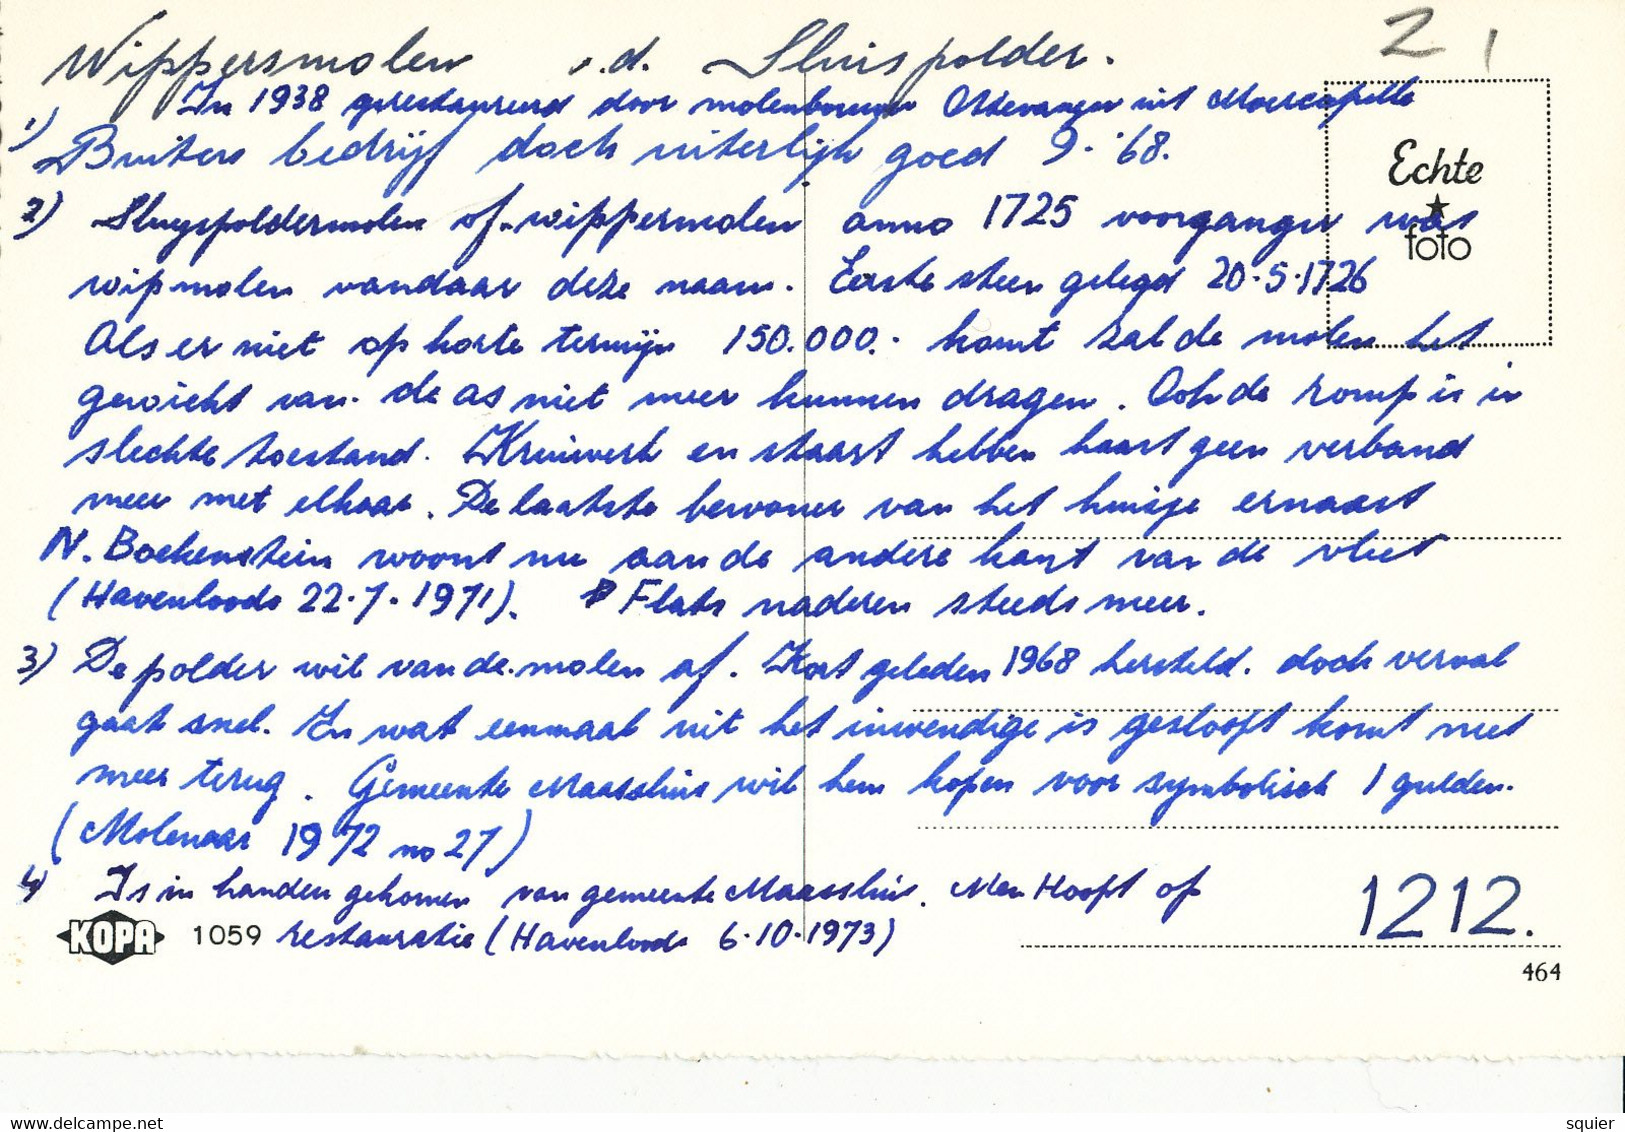 Z 1
Wippersmolen v.d. Sluispolder.
1) In 1938 gerestaureerd door molenbouwer uit Moercapelle
Buiten bedrijf doch uiterlijk goed 9-'68.
Echte
foto
2) Sluyspoldermolen of wippermolen anno 1725 voorganger was
wipmolen vandaar deze naam. Eerste steen gelegd 20-5-1726
Als er niet op korte termijn 150.000.- komt zal de molen het
gewicht van de as niet meer kunnen dragen. Ook de romp is in
slechte toestand. Kruiwerk en staart hebben haast geen verband
meer met elkaar. De laatste bewoner van het huisje ernaast
N. Boekenstein woont nu aan de andere kant van de vliet
(Havenloods 22-7-1971). Flats naderen steeds meer.
3) De polder wil van de molen af. Kort geleden 1968 hersteld. doch verval
gaat snel. En wat eenmaal uit het inwendige is gesloopt komt niet
meer terug. Gemeente Maassluis wil hem kopen voor symbolisch 1 gulden.
(Molenaar 1972 no 27)
4) Is in handen gekomen van gemeente Maassluis. Men Hoopt op
KOPA 1059 restauratie (Havenloods 6-10-1973)
1212.
464
delcampe.net
squier